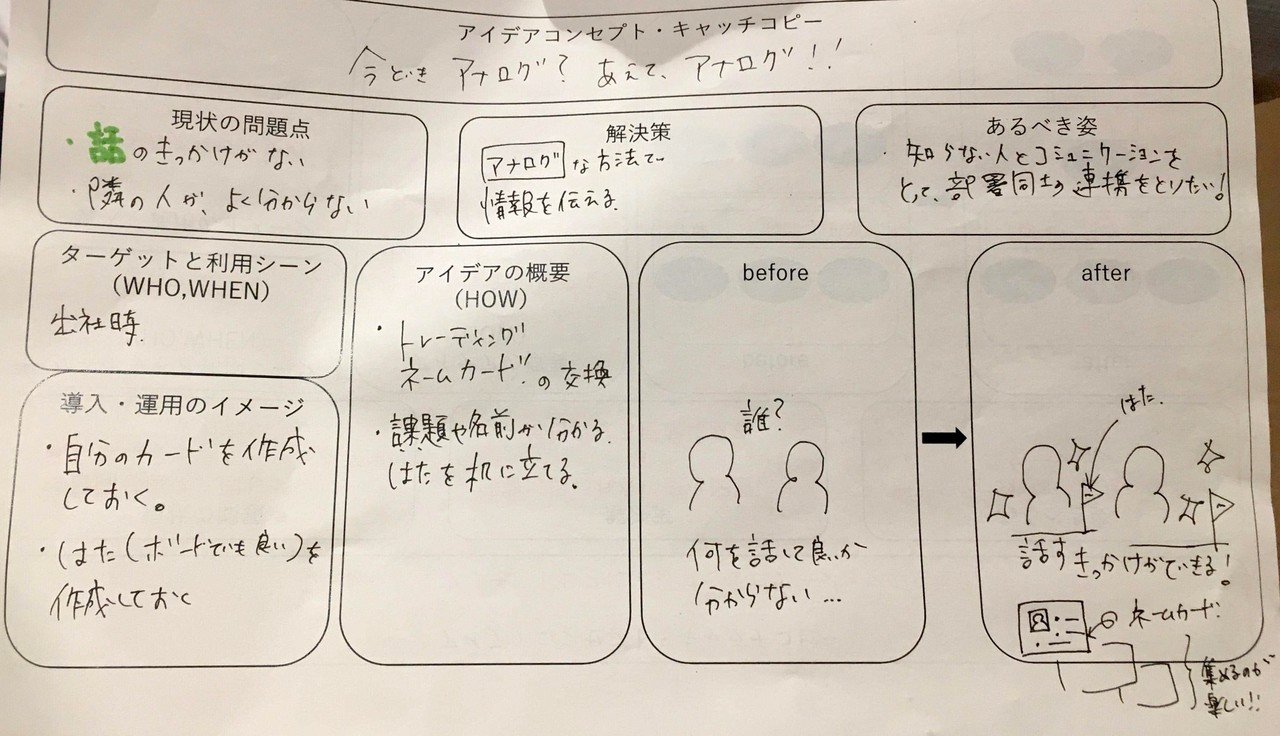 アイデアコンセプト・キャッチコピー
今どき アナログ? あえて、アナログ!!
現状の問題点
・話のきっかけがない
・隣の人が、よく分からない
解決策
アナログな方法で
情報を伝える。
あるべき姿
・知らない人とコミュニケーションを
とって、部署同士の連携をとりたい!
ターゲットと利用シーン
(WHO,WHEN)
出社時
導入・運用のイメージ
・自分のカードを作成
しておく。
・はた(ボードでも良い)を
作成しておく
アイデアの概要
(HOW)
・トレーディング
ネームカードの交換
・課題や名前が分かる
はたを机に立てる。
before
誰?
何を話して良いか
分からない…
after
はた.
話すきっかけができる!
ネームカード
集めるのが
楽しい!!